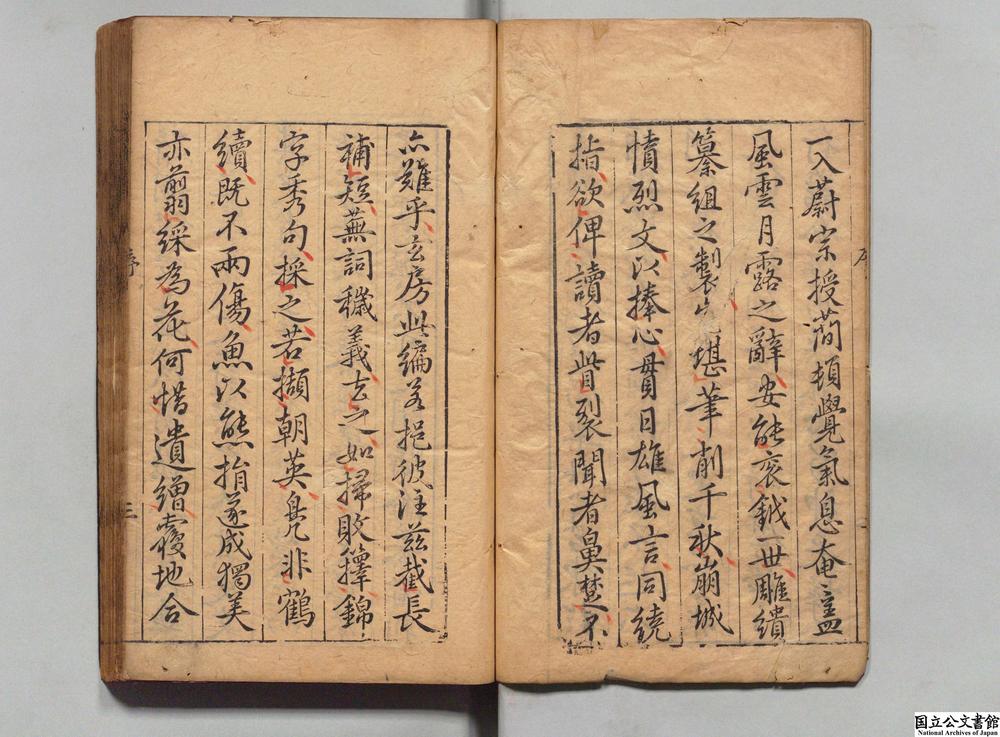 一入蔚宗授蕑頓覺氣息奄〻蓋
風雲月露之辭安能衮鉞一世雕繢
纂組之製 堪筆削千秋崩城
憤烈文以捧心貫日雄風言同繞
指欲俾讀者眥裂聞者鼻楚不
亦難乎玄房此編若挹彼注茲截長
補短蕪詞穢義去之如掃敗籜錦
字秀句採之若擷朝英鳧非鶴
續既不兩傷魚以熊捐遂成獨美
亦翦綵為花何惜遺繒覆地合
序
三
国立公文書館
National Archives of Japan